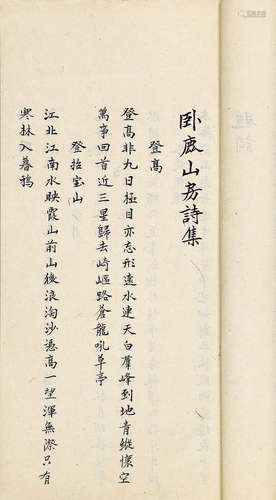 卧鹿山房詩集
登高
登高非九日極目亦忘形遠水連天白羣峰到地青縱懷空
萬事回首近三星歸去崎嶇路蒼龍吼草亭
登抬宝山
江北江南水映霞山前山後浪淘沙憑高一望渾無際只有
寒林入暮鴉